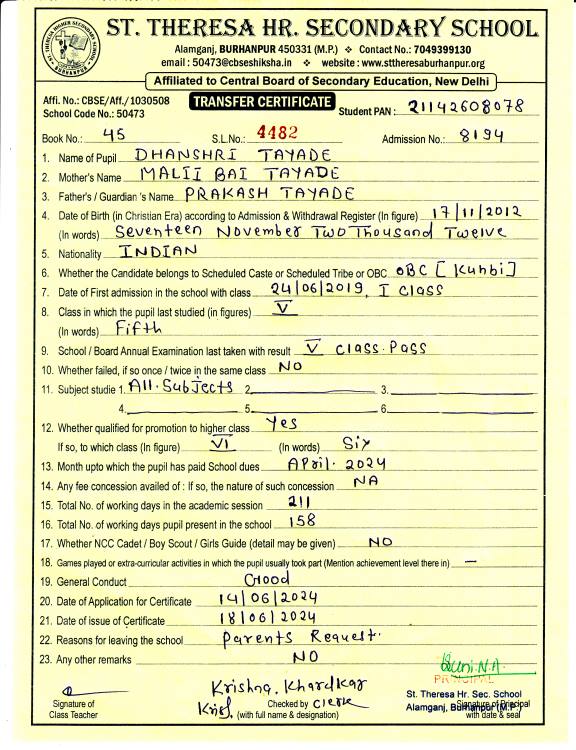 ST. THERESA HR. SECONDARY SCHOOL
Alamganj, BURHANPUR 450331 (M.P.) ❖ Contact No.: 7049399130
email : 50473@cbseshiksha.in ❖ website : www.sttheresaburhanpur.org
Affiliated to Central Board of Secondary Education, New Delhi
Affi. No.: CBSE/Aff./1030508
School Code No.: 50473
TRANSFER CERTIFICATE
Student PAN : 21142608078
Book No.: 45 S.L.No.: 4482 Admission No.: 8194
1. Name of Pupil DHANSHRI TAYADE
2. Mother's Name MALII BAI TAYADE
3. Father's / Guardian 's Name PRAKASH TAYADE
4. Date of Birth (in Christian Era) according to Admission & Withdrawal Register (In figure) 17/11/2012
(In words) Seventeen November Two Thousand Twelve
5. Nationality INDIAN
6. Whether the Candidate belongs to Scheduled Caste or Scheduled Tribe or OBC. OBC [Kunbi]
7. Date of First admission in the school with class 24/06/2019, I class
8. Class in which the pupil last studied (in figures) V
(In words) Fifth
9. School / Board Annual Examination last taken with result V class. Pass
10. Whether failed, if so once / twice in the same class NO
11. Subject studie 1. All. Subjects 2. 3.
4. 5. 6.
12. Whether qualified for promotion to higher class Yes
If so, to which class (In figure) VI (In words) Six
13. Month upto which the pupil has paid School dues April. 2024
14. Any fee concession availed of : If so, the nature of such concession NA
15. Total No. of working days in the academic session 211
16. Total No. of working days pupil present in the school 158
17. Whether NCC Cadet / Boy Scout / Girls Guide (detail may be given) NO
18. Games played or extra-curricular activities in which the pupil usually took part (Mention achievement level there in) —
19. General Conduct Good
20. Date of Application for Certificate 14/06/2024
21. Date of issue of Certificate 18/06/2024
22. Reasons for leaving the school Parents Request.
23. Any other remarks NO
PRINCIPAL
Krishna. Khardkar
St. Theresa Hr. Sec. School
Signature of
Class Teacher
Checked by Clerk
(with full name & designation)
Alamganj, Burhanpur (M.P.)
Signature of Principal
with date & seal